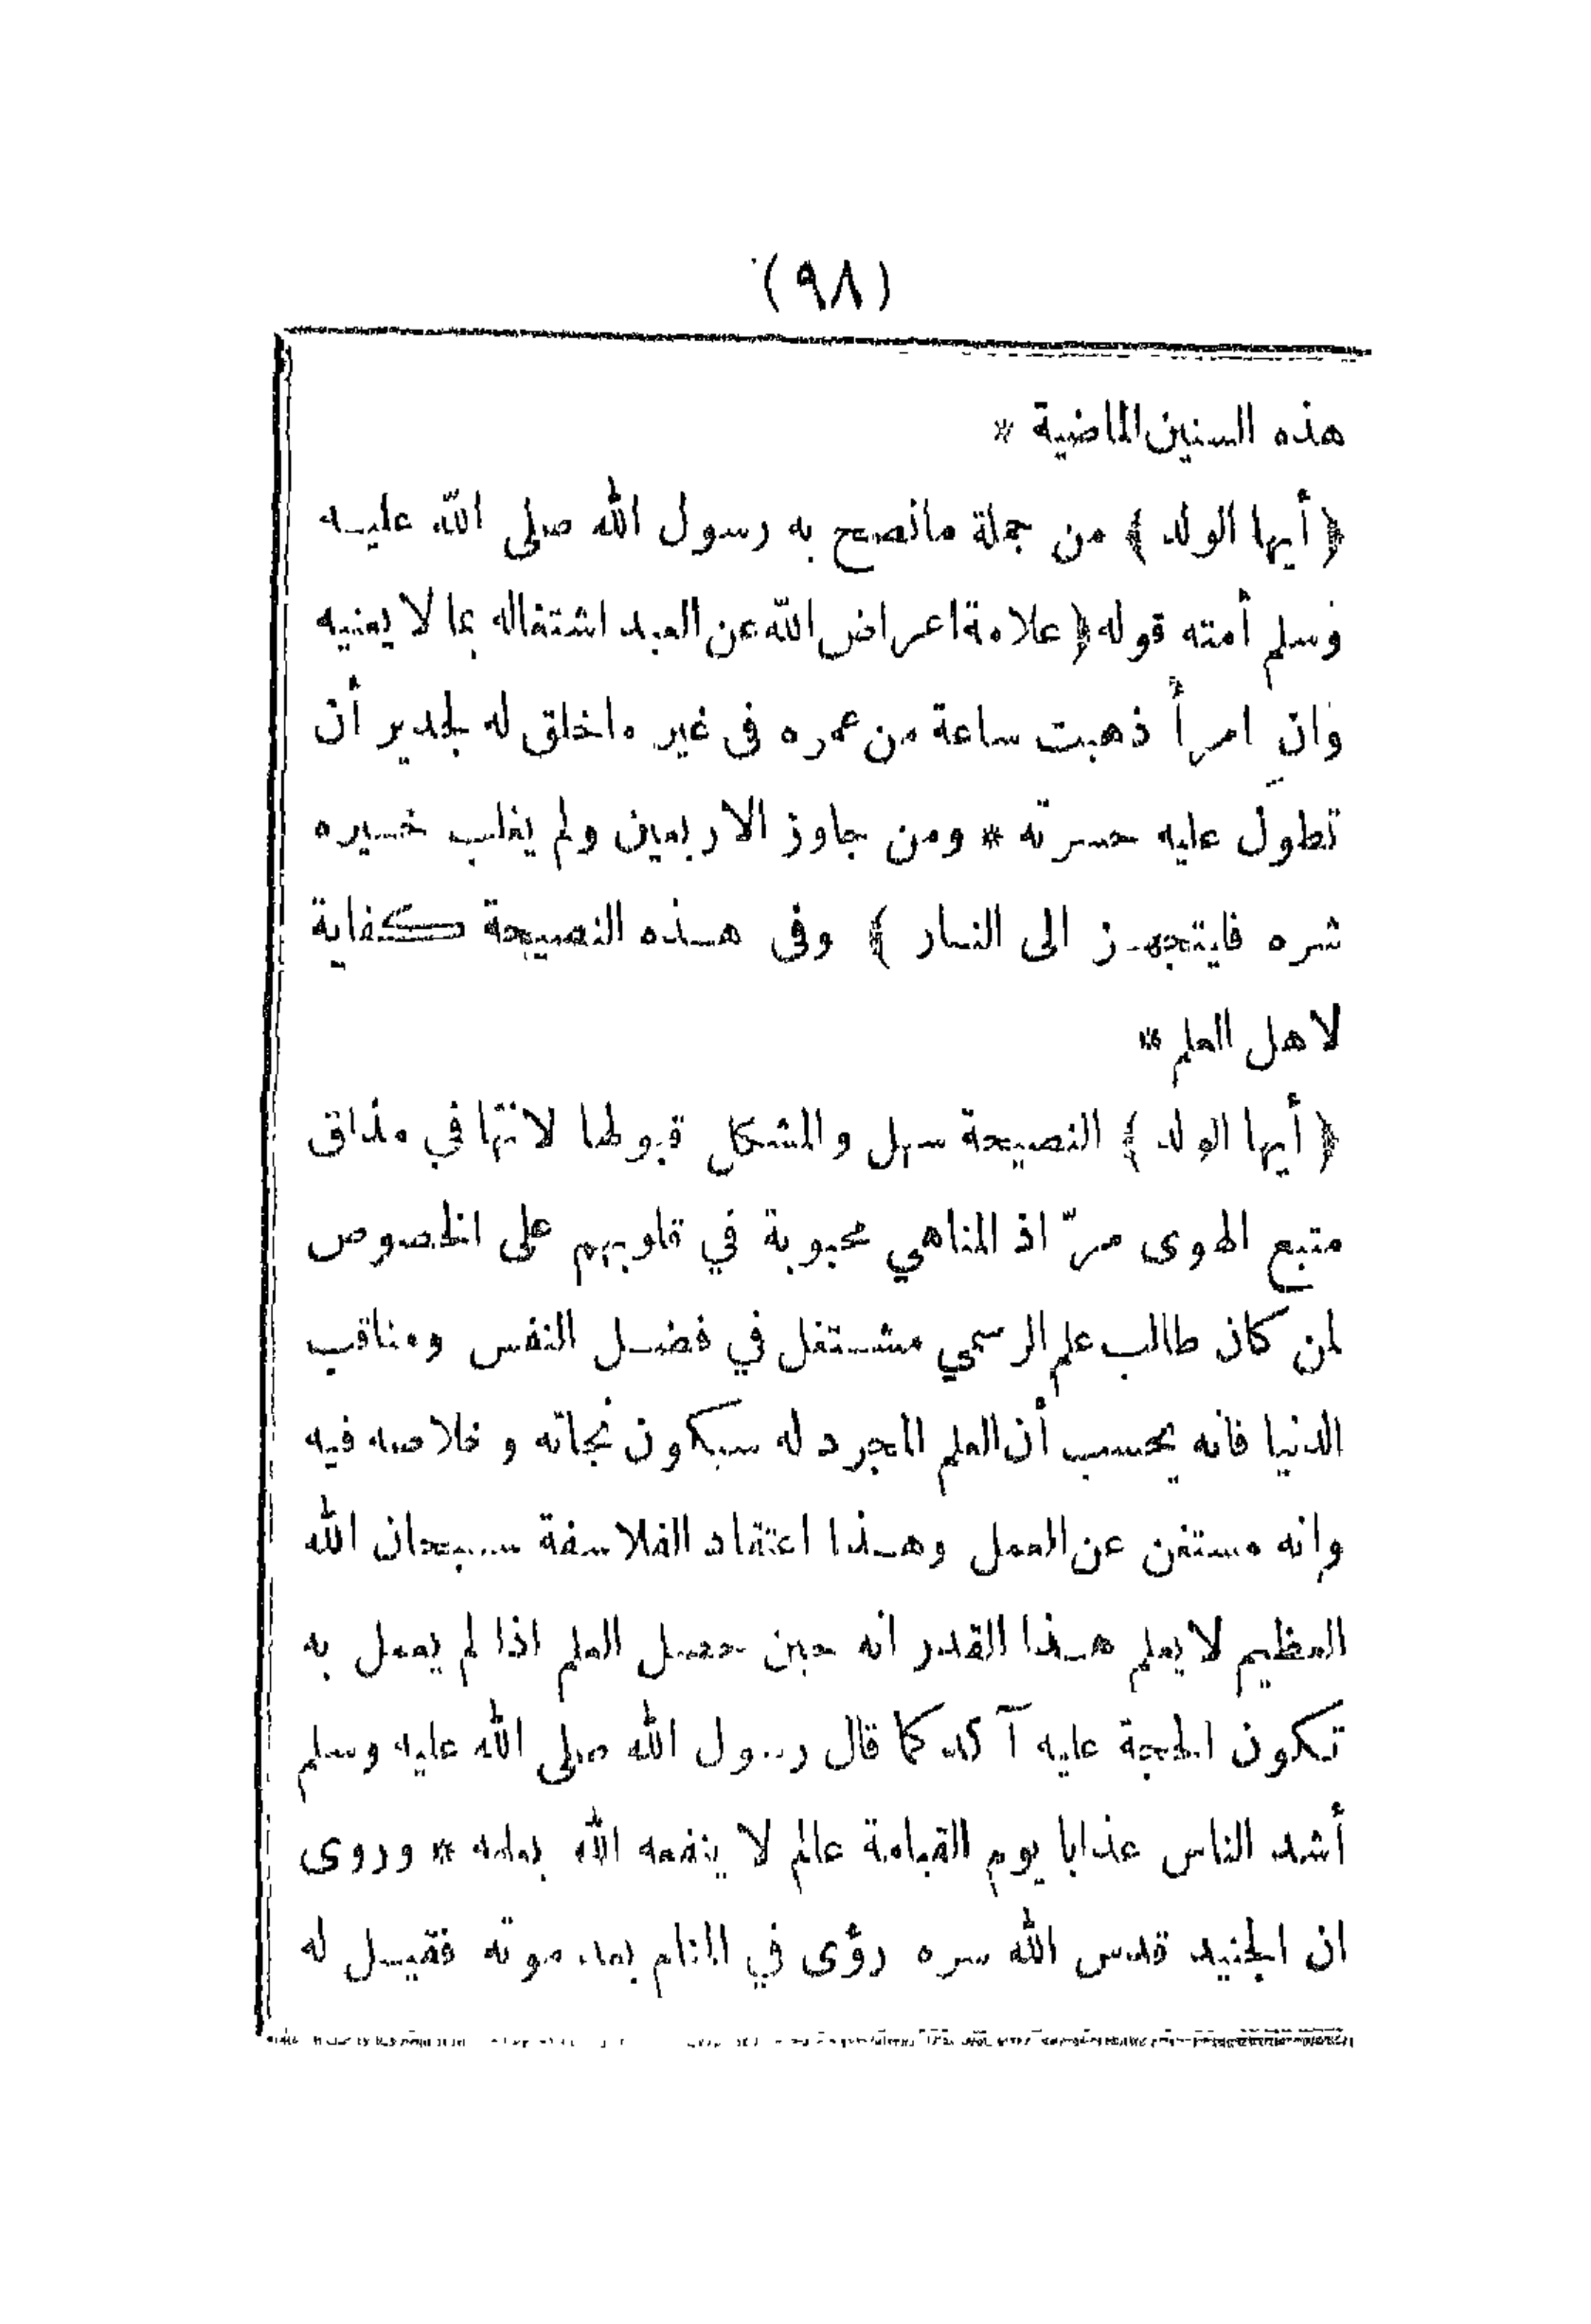 (٩٨)
هذه السنين الماضية *
﴿ أيها الولد ﴾ من جملة مانصح به رسول الله صلى الله عليه
وسلم أمته قوله ﴿ علامة اعراض الله عن العبد اشتغاله بما لا يعنيه
وان امرأً ذهبت ساعة من عمره فى غير ما خلق له لجدير أن
تطول عليه حسرته * ومن جاوز الاربعين ولم يغلب خيره
شره فليتجهز الى النار ﴾ وفى هذه النصيحة كفاية
لاهل العلم *
﴿ أيها الولد ﴾ النصيحة سهل والمشكل قبولها لانّها في مذاق
متبع الهوى مرّ اذ المناهي محبوبة في قلوبهم على الخصوص
لمن كان طالب علم الرسمي مشتغل في فضل النفس ومناقب
الدنيا فانه يحسب أن العلم المجرد له سيكون نجاته وخلاصه فيه
وانه مستغن عن العمل وهذا اعتقاد الفلاسفة سبحان الله
العظيم لا يعلم هذا القدر انه حين حصل العلم اذا لم يعمل به
تكون الحجة عليه آكد كما قال رسول الله صلى الله عليه وسلم
أشد الناس عذابا يوم القيامة عالم لا ينفعه الله بعلمه * وروى
ان الجنيد قدس الله سره رؤى في المنام بعد موته فقيل له